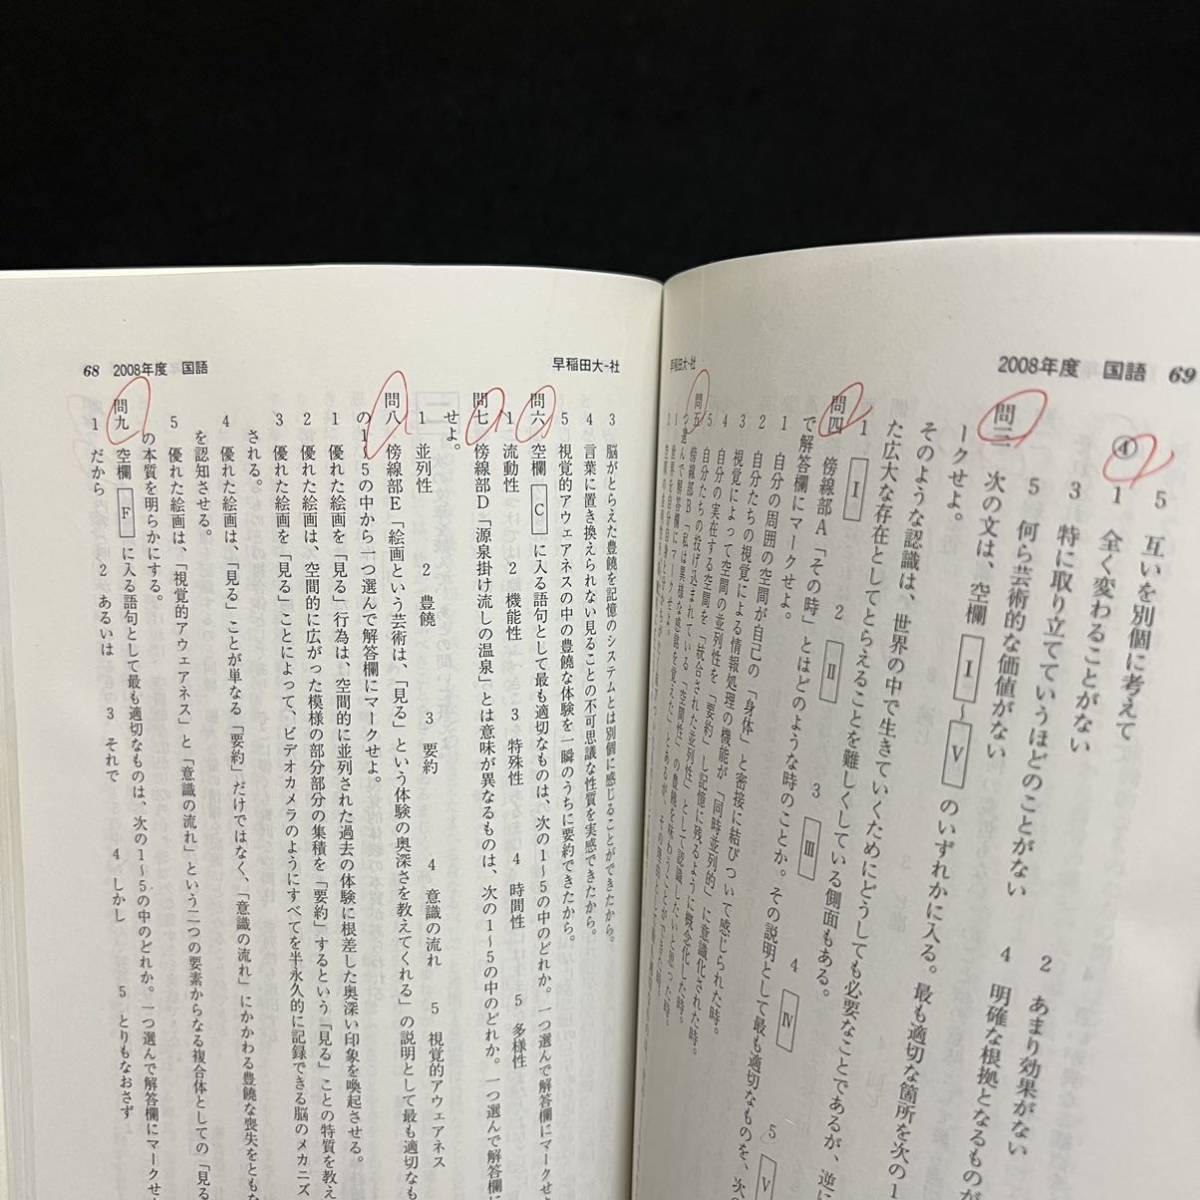 2008年度 国語 69
早稲田大-社
5 互いを別個に考えて
④
1 全く変わることがない
2 あまり効果がない
3 特に取り立てていうほどのことがない
4 明確な根拠となるものが
5 何ら芸術的な価値がない
問三 次の文は、空欄 Ⅰ ～ Ⅴ のいずれかに入る。最も適切な箇所を次の1
ークせよ。
そのような認識は、世界の中で生きていくためにどうしても必要なことであるが、逆に
た広大な存在としてとらえることを難しくしている側面もある。
1 Ⅰ 2 Ⅱ 3 Ⅲ 4 Ⅳ 5 Ⅴ
問四 傍線部A「その時」とはどのような時のことか。その説明として最も適切なものを、次の
で解答欄にマークせよ。
1 自分の周囲の空間が自己の「身体」と密接に結びついて感じられた時。
2 自分たちの視覚による情報処理の機能が「同時並列的」に意識化された時。
3 視覚によって空間の並列性を「要約」し記憶に残るように概念化した時。
4 自分の実在する空間を「統合された並列性」として認識したいと思った時。
5 自分たちの投げ込まれている「空間性」の豊饒を味わうことができた時。
問五 傍線部B「私は異様な感銘を覚えた」とあるが、
つ選んで解答欄にマークせよ。
68 2008年度 国語
早稲田大-社
3 脳がとらえた豊饒を記憶のシステムとは別個に感じることができたから。
4 言葉に置き換えられない見ることの不可思議な性質を実感できたから。
5 視覚的アウェアネスの中の豊饒な体験を一瞬のうちに要約できたから。
問六 空欄 C に入る語句として最も適切なものは、次の1～5の中のどれか。一つ選んで解答欄にマークせよ。
1 流動性 2 機能性 3 特殊性 4 時間性 5 多様性
問七 傍線部D「源泉掛け流しの温泉」とは意味が異なるものは、次の1～5の中のどれか。一つ選んで解答欄
せよ。
1 並列性 2 豊饒 3 要約 4 意識の流れ 5 視覚的アウェアネス
問八 傍線部E「絵画という芸術は、「見る」という体験の奥深さを教えてくれる」の説明として最も適切なも
の1～5の中から一つ選んで解答欄にマークせよ。
1 優れた絵画を「見る」行為は、空間的に並列された過去の体験に根差した奥深い印象を喚起させる。
2 優れた絵画は、空間的に広がった模様の部分部分の集積を「要約」するという「見る」ことの特質を教え
3 優れた絵画を「見る」ことによって、ビデオカメラのようにすべてを半永久的に記録できる脳のメカニズ
される。
4 優れた絵画は、「見る」ことが単なる「要約」だけではなく、「意識の流れ」にかかわる豊饒な喪失をともな
を認知させる。
5 優れた絵画は、「視覚的アウェアネス」と「意識の流れ」という二つの要素からなる複合体としての「見る
の本質を明らかにする。
問九 空欄 F に入る語句として最も適切なものは、次の1～5の中のどれか。一つ選んで解答欄にマークせ
1 だから 2 あるいは 3 それで 4 しかし 5 とりもなおさず